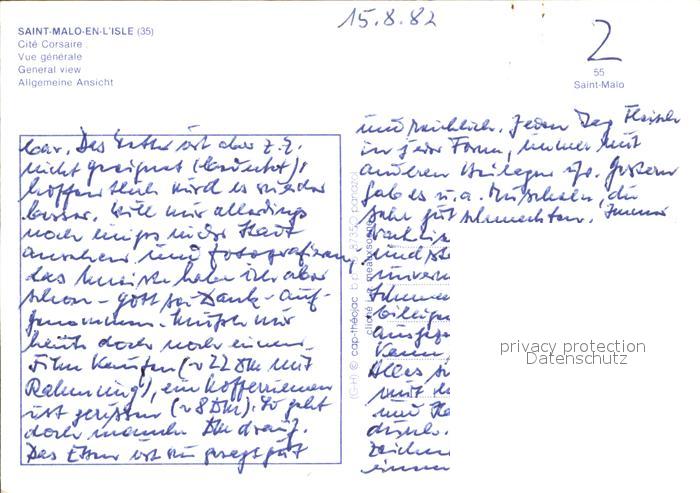 SAINT-MALO-EN-L'ISLE (35)
Cité Corsaire.
Vue générale
General view
Allgemeine Ansicht
15.8.82
2
55
Saint-Malo
bar. Das Wetter ist aber z.Z.
nicht geeignet (bewölkt),
hoffentlich wird es wieder
besser. Will mir allerdings
noch einiges in der Stadt
ansehen und fotografieren,
das meiste habe ich aber
schon - Gott sei Dank - auf-
genommen. Mußte mir
heute doch noch einen
Film kaufen (~22 DM mit
Rahmung), ein Kofferriemen
ist gerissen (~8 DM). So geht
doch manche DM drauf.
Das Essen ist wie gesagt gut
und reichlich. Jeden Tag Fleisch
in jeder Form, immer mit
anderen Beilagen usw. Gestern
gab es u.a. Muscheln, die
sehr gut schmeckten. Immer
und
Schme
billig
Kann
Alles
mit
und
zeichn
(G-H) © cap-théojac
87350 panazol
privacy protection
Datenschutz